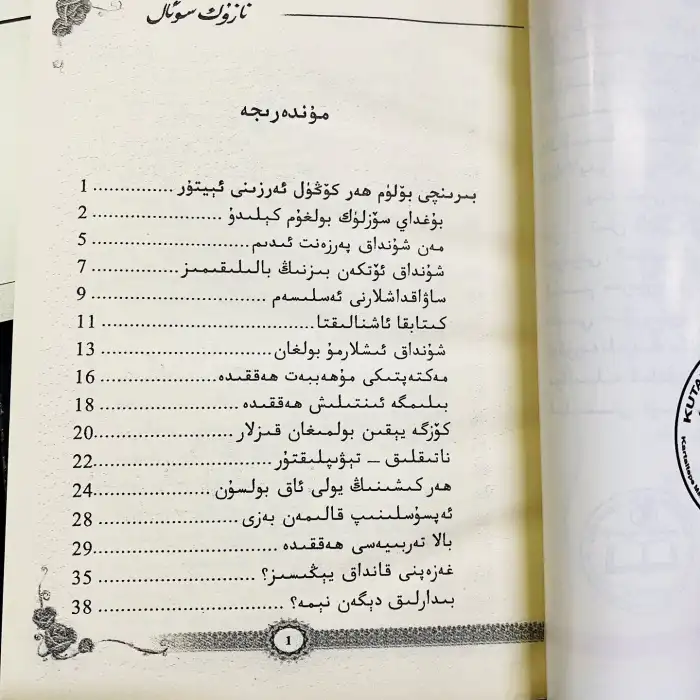 نازۇك سوئال
مۇندەرىجە
بىرىنچى بۆلۈم ھەر كۆڭۈل ئەرزىنى ئېيتۇر ............... 1
بۇغداي سۆزلۈك بولغۇم كېلىدۇ ...................... 2
مەن شۇنداق پەرزەنت ئىدىم ......................... 5
شۇنداق ئۆتكەن بىزنىڭ بالىلىقىمىز .................. 7
ساۋاقداشلارنى ئەسلىسەم ........................... 9
كىتابقا ئاشنالىقتا ................................... 11
شۇنداق ئىشلارمۇ بولغان ........................... 13
مەكتەپتىكى مۇھەببەت ھەققىدە ..................... 16
بىلىمگە ئىنتىلىش ھەققىدە ......................... 18
كۆزگە يېقىن بولمىغان قىزلار ....................... 20
ناتىقلىق – تېۋىپلىقتۇر ............................. 22
ھەر كىشىنىڭ يولى ئاق بولسۇن .................... 24
ئەپسۇسلىنىپ قالىمەن بەزى ....................... 28
بالا تەربىيەسى ھەققىدە ............................ 29
غەزەپنى قانداق يېڭىسىز؟ .......................... 35
بىدارلىق دېگەن نېمە؟ .............................. 38
1
KUTA